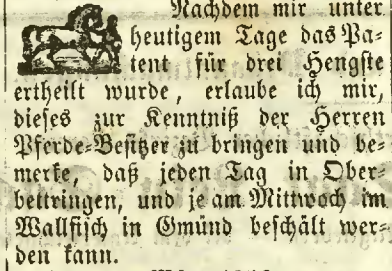 Nachdem mir unter
heutigem Tage das Pa-
tent für drei Hengste
ertheilt wurde, erlaube ich mir,
dieses zur Kenntniß der Herren
Pferde-Besitzer zu bringen und be-
merke, daß jeden Tag in Ober-
bettringen, und je am Mittwoch im
Wallfisch in Gmünd beschält wer-
den kann.